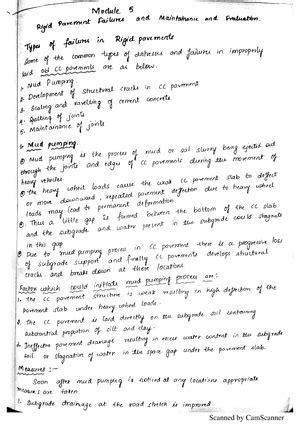 Module 5
Rigid Pavement Failures and Maintainance and Evaluation.
Types of failures in Rigid pavements
Some of the common types of distresses and failures in improperly
laid old CC pavements are as below.
1. Mud Pumping.
2. Development of Structural cracks in CC pavement
3. Scaling and ravelling of cement concrete
4. Spalling of joints
5. Maintainance of joints
Mud pumping.
Mud pumping is the process of mud or soil slurry being ejected out
through the joints and edges of CC pavements during the movement of
heavy vehicles.
the heavy wheel loads cause the weak CC pavement slab to deflect
or move downward, repeated pavement deflection due to heavy wheel
loads may lead to permanent deformation.
Thus a little gap is formed between the bottom of the CC slab
and the subgrade and water present in the subgrade could stagnate
in this gap.
Due to mud pumping process in CC pavement there is a progressive loss
of subgrade support and finally CC pavements develops structural
cracks and break down at these locations
Factor which could initiate mud pumping process are:
1. the CC pavement structure is weak resulting in high deflection of the
pavement slab under heavy wheel loads.
2. the CC pavement is laid directly on the subgrade soil containing
substantial proportion of silt and clay.
Ineffective pavement drainage resulting in excess water content in the subgrade
soil or stagnation of water in the space gap under the pavement slab.
Measures :-
Soon after mud pumping is noticed at any locations appropriate
measures are taken.
1. Subgrade drainage at the road stretch is improved.
Scanned by CamScanner